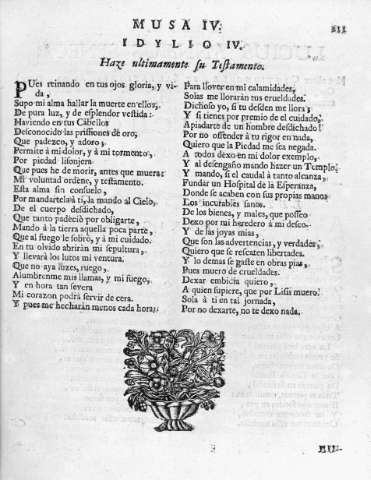 MUSA IV.
211
IDYLIO IV.
Haze ultimamente su Testamento.
PUes reinando en tus ojos gloria, y vi-
da,
Supo mi alma hallar la muerte en ellos,
De pura luz, y de esplendor vestida:
Haviendo en tus Cabellos
Desconocido las prissiones de oro,
Que padezco, y adoro,
Permite à mi dolor, y à mi tormento,
Por piedad lisonjera
Que pues he de morir, antes que muera:
Mi voluntad ordene, y testamento.
Esta alma sin consuelo,
Por mandartela à ti, la mando al Cielo,
De el cuerpo desdichado,
Que tanto padeciò por obligarte,
Mando à la tierra aquella poca parte,
Que al fuego le sobrò, y à mi cuidado.
En tu olvido abriràn mi sepultura,
Y llevarà los lutos mi ventura.
Que no aya luzes, ruego,
Alumbrenme mis llamas, y mi fuego.
Y en hora tan severa
Mi corazon podrà servir de cera.
Y pues me hecharàn menos cada hora,
Para llover en mi calamidades,
Solas me lloraràn tus crueldades.
Dichoso yo, si tu desden me llora;
Y si tienes por premio de el cuidado,
Apiadarte de un hombre desdichado!
Por no ofender à tu rigor en nada,
Quiero que la Piedad me sea negada.
A todos dexo en mi dolor exemplo,
Y al desengaño mando hazer un Templo,
Y mando, si el caudal à tanto alcanza,
Fundar un Hospital de la Esperanza,
Donde se acaben con sus propias manos
Los incurables sanos.
De los bienes, y males, que posseo
Dexo por mi heredero à mi desseo.
Y de las joyas mias,
Que son las advertencias, y verdades,
Quiero que se rescaten libertades.
Y lo demas se gaste en obras pias,
Pues muero de crueldades.
Dexar embidia quiero,
A quien supiere, que por Lisis muero.
Sola à ti en tal jornada,
Por no dexarte, no te dexo nada.